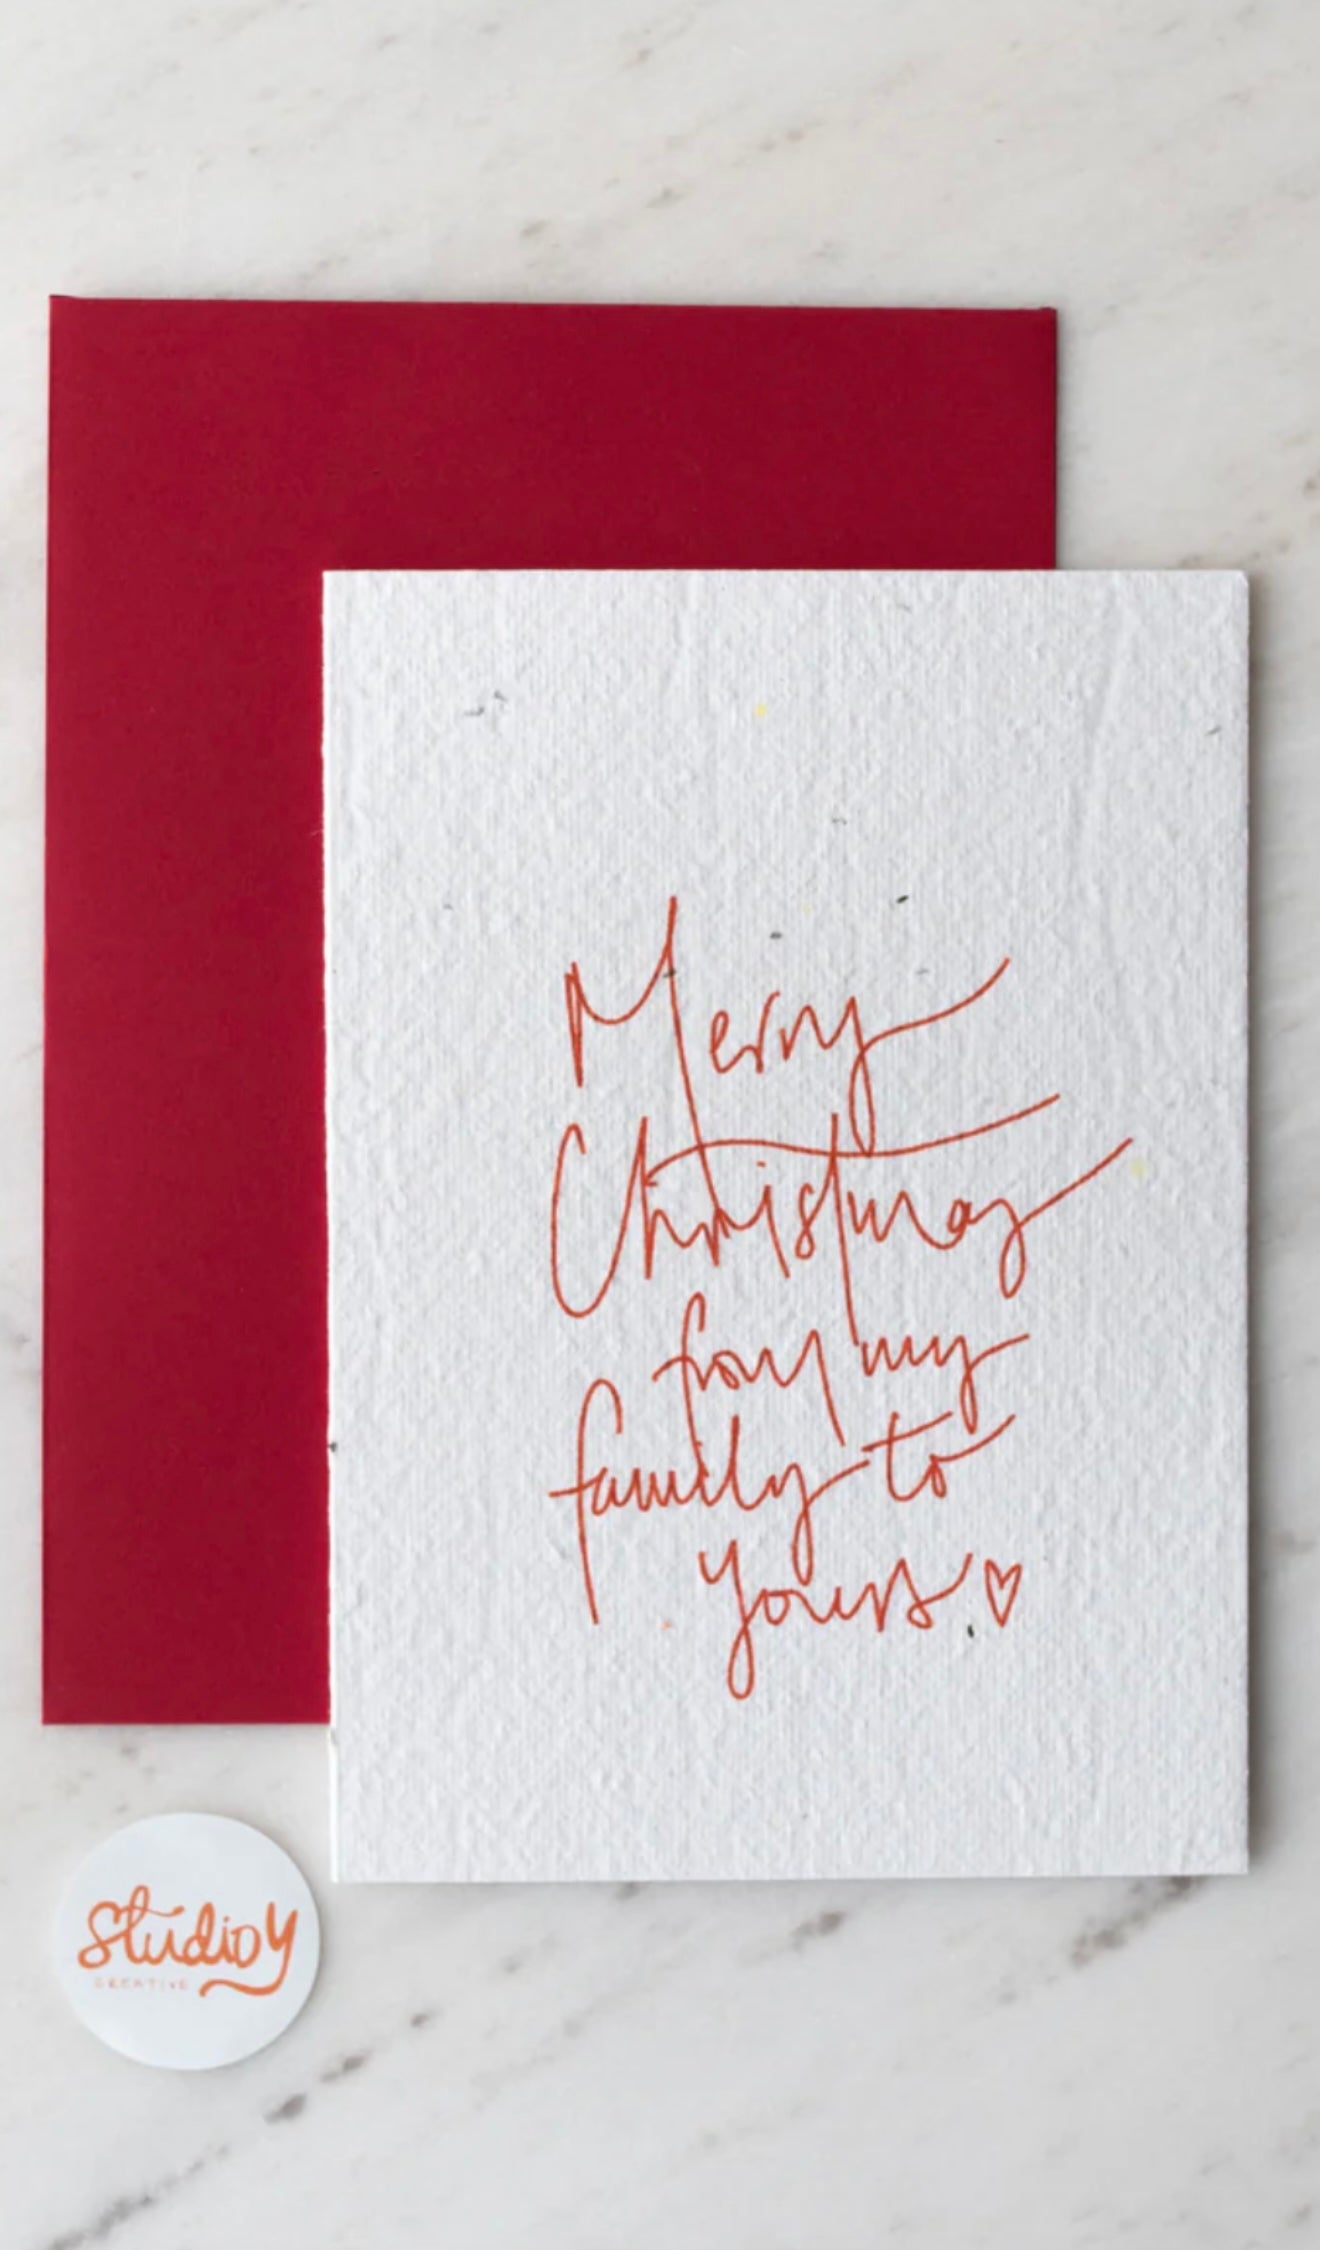 Merry
Christmas
from my
family to
yours ♡
studio y
CREATIVE